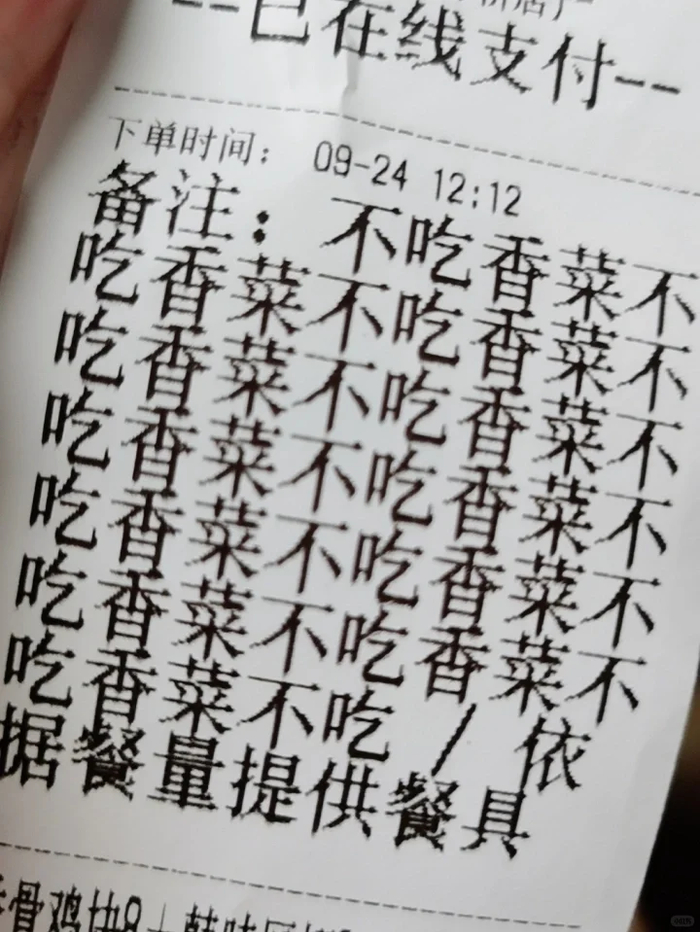 --已在线支付--
下单时间： 09-24 12:12
备注： 不吃香菜不
吃香菜不吃香菜不
吃香菜不吃香菜不
吃香菜不吃香菜不
吃香菜不吃香菜不
吃香菜不吃香菜不
吃香菜不吃 / 依
据餐量提供餐具
骨鸡块